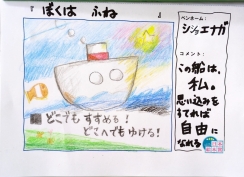 『 ぼくは ふね 』
どこでも すすめる!
どこへでもゆける!
ペンネーム:
シマエナガ
コメント:
この船は、
私。
思い込みを
すてれば
自由に
なれる